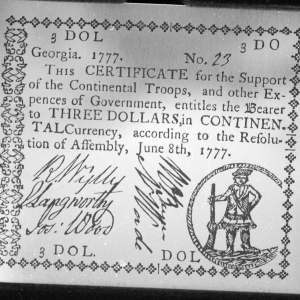 3 DOL 3 DO
Georgia. 1777. No. 23
THIS CERTIFICATE for the Support
of the Continental Troops, and other Ex-
pences of Government, entitles the Bearer
to THREE DOLLARS, in CONTINEN-
TAL Currency, according to the Resolu-
tion of Assembly, June 8th, 1777.
R. Wylly
Langworthy
Jos: Wood
3 DOL. DOL